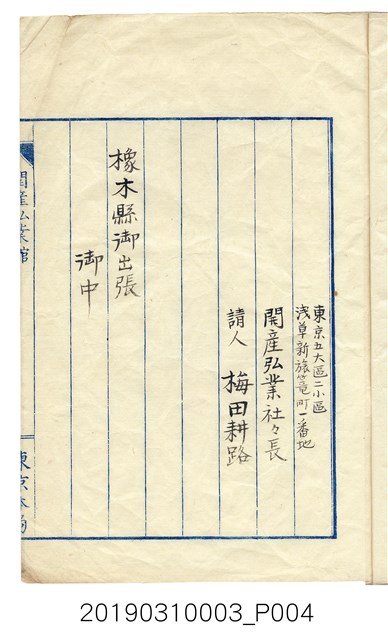 東京五大區二小區
浅草新旅篭町一番地
開産弘業社々長
請人 梅田耕路
橡木縣御出張
御中
開産弘業館
東京本局
20190310003_P004